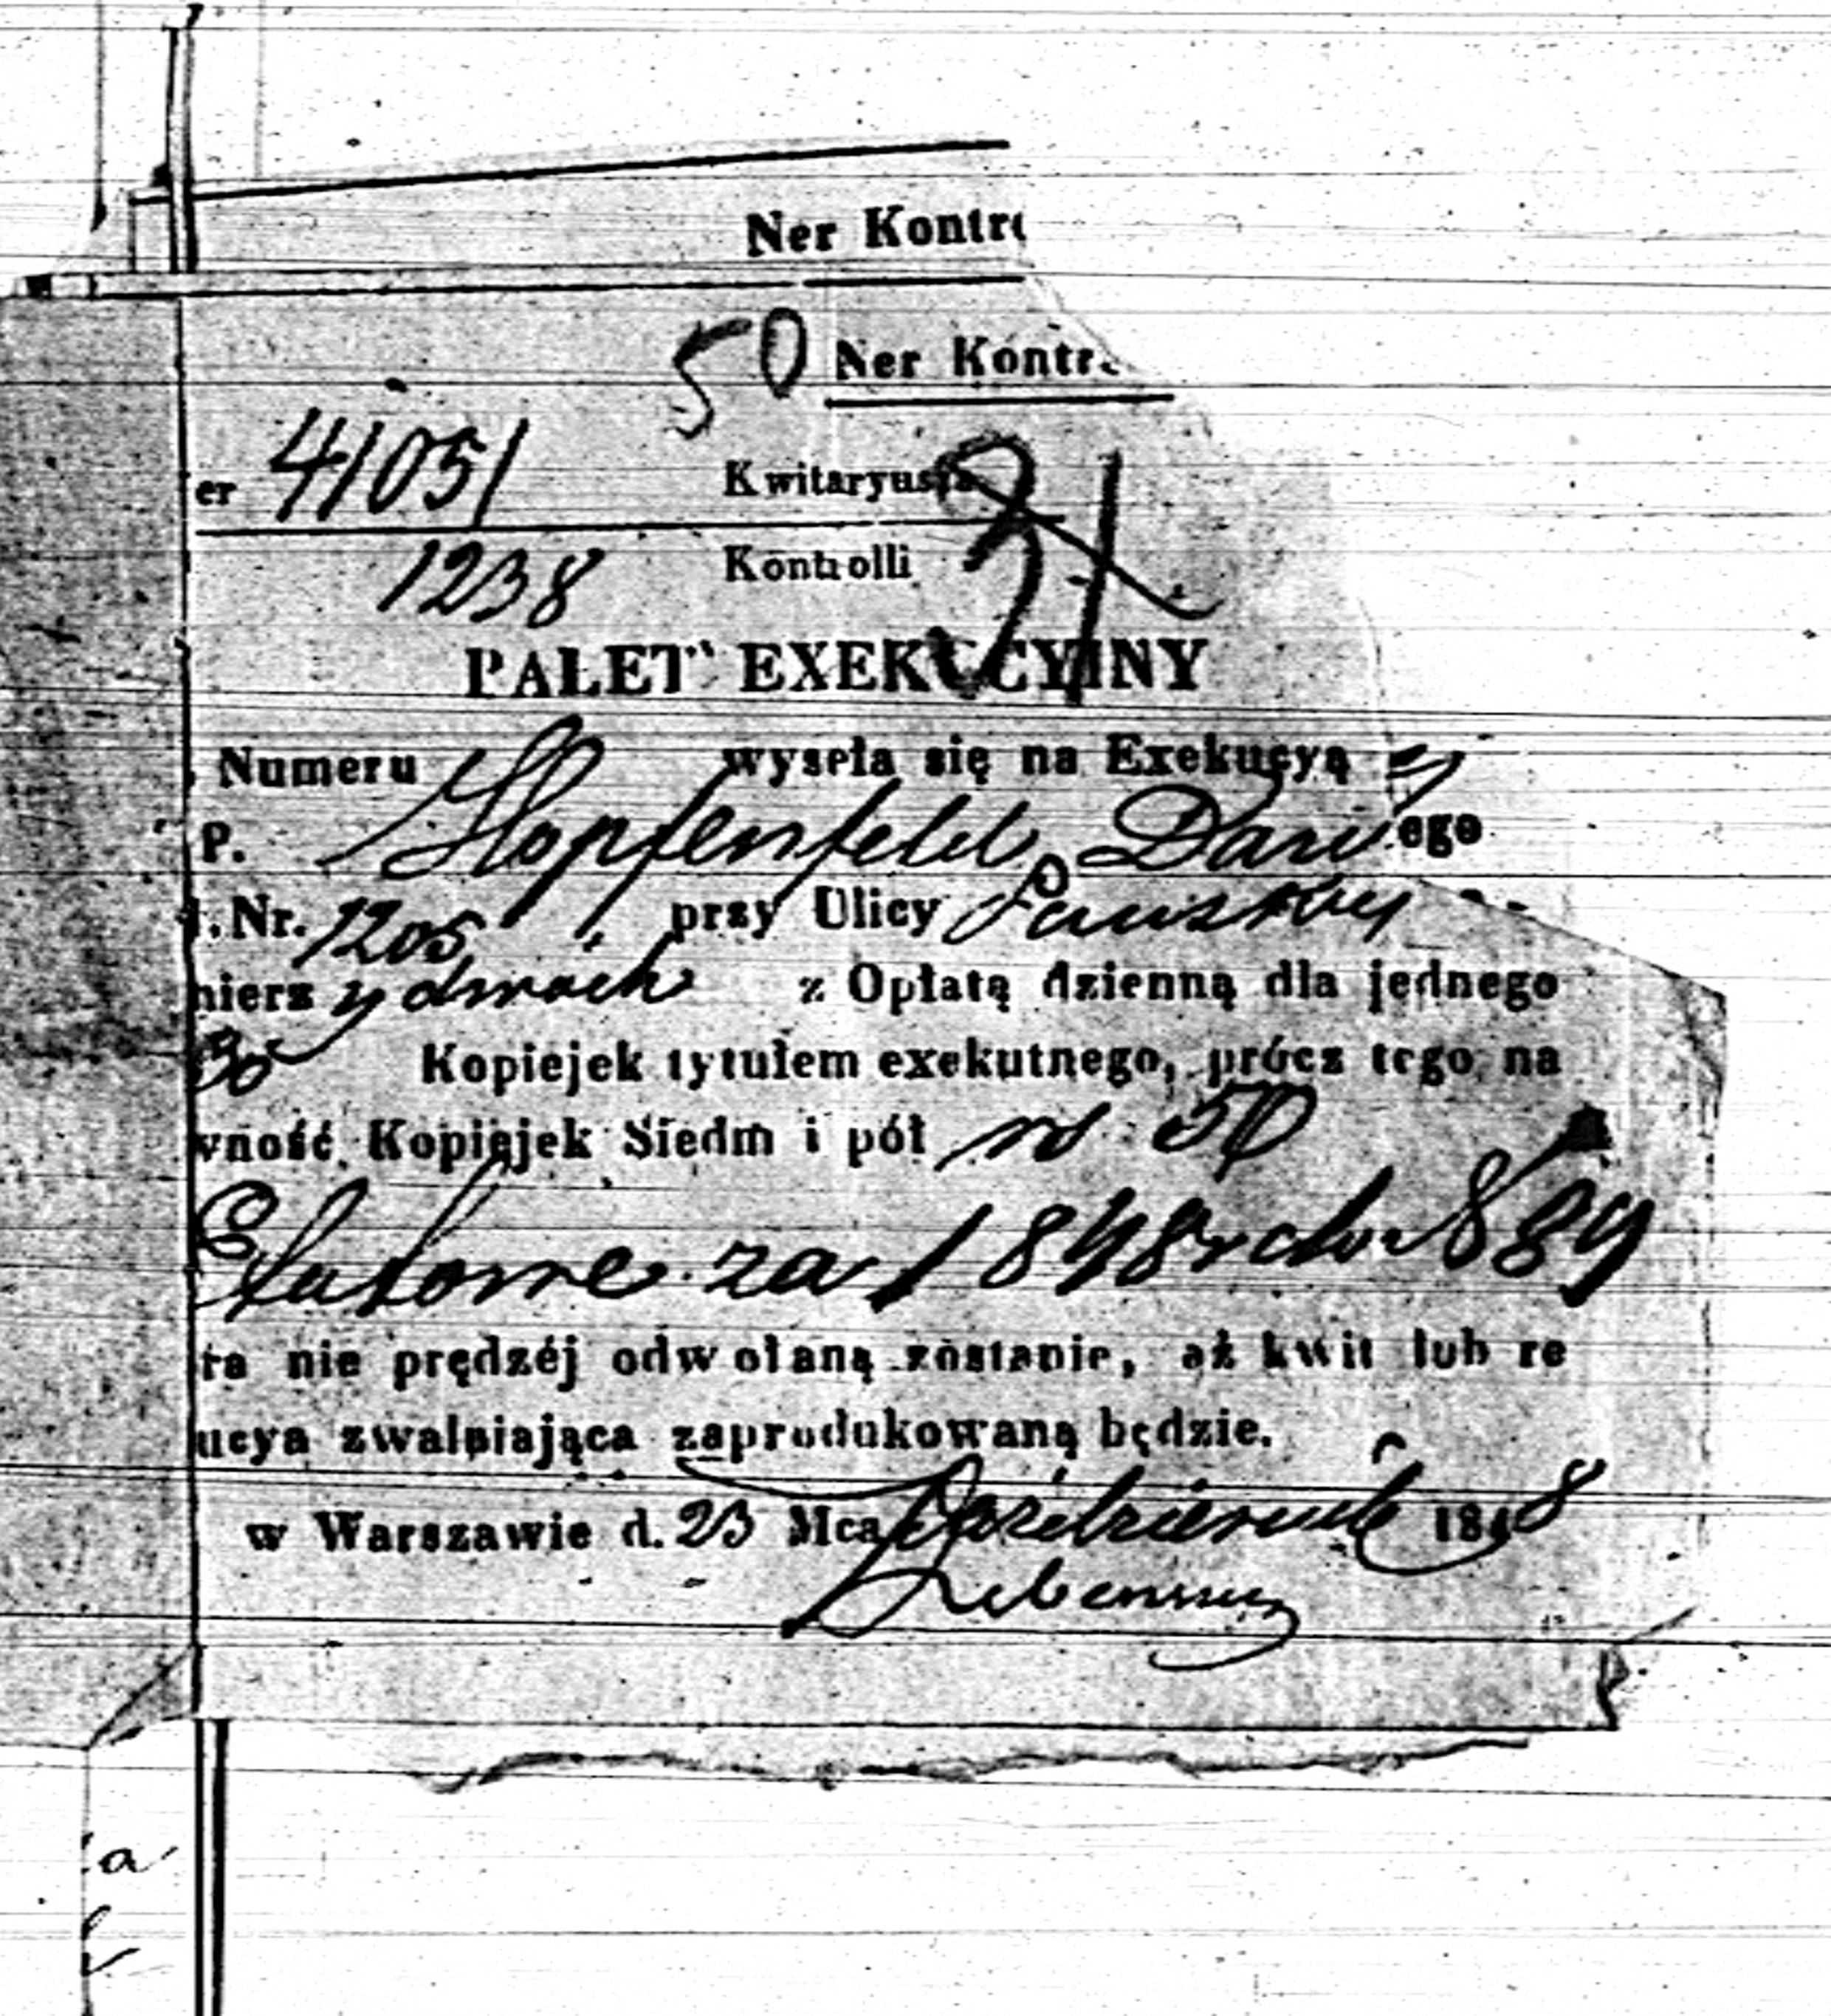 Ner Kontr
50 Ner Kontr
er 41051 Kwitaryusza
1238 Kontrolli 21
PALET EXEKUCYINY
Numeru wyseła się na Exekucyą
P. Hopfenfeld Daw ego
Nr. 1205 przy Ulicy Pańskiej
nierz y dwóch z Opłatą dzienną dla jednego
30 Kopiejek tytułem exekutnego, prócz tego na
wność Kopiejek Siedm i pół rs 50
Etatowe za 1848 r do N 889
ra nie prędzéj odwołaną zostanie, aż kwit lub re
ucya zwalniająca zaprodukowaną będzie.
w Warszawie d. 23 Mca Października 1848
a